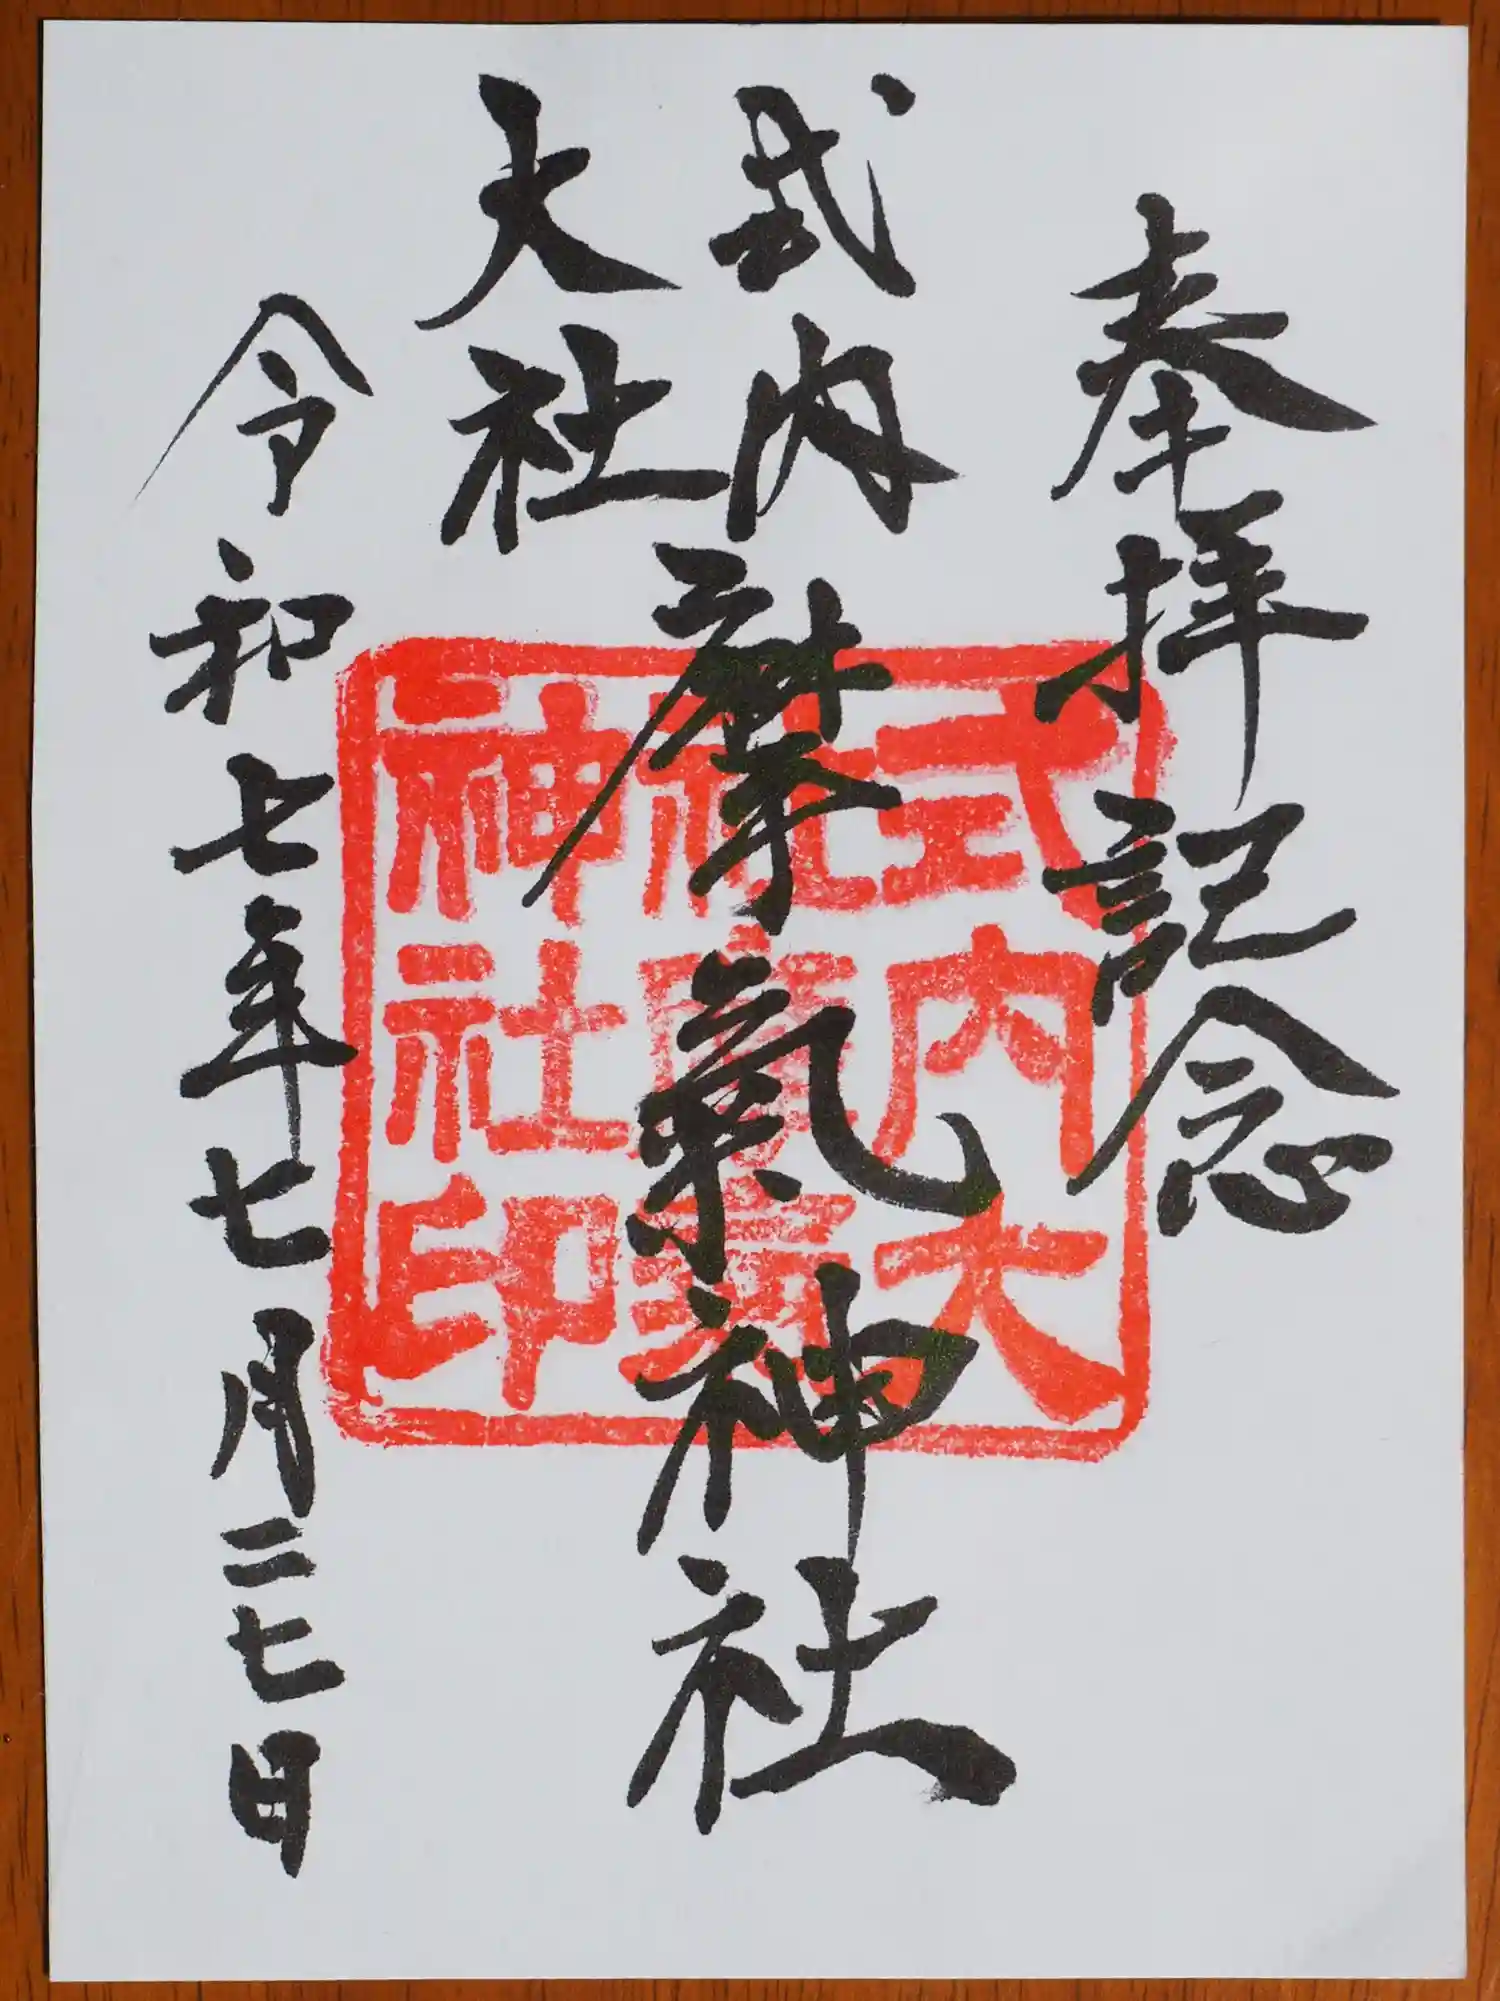 奉拝記念
式内
大社
摩氣神社
令和七年七月二七日
式内大
社摩氣
神社印